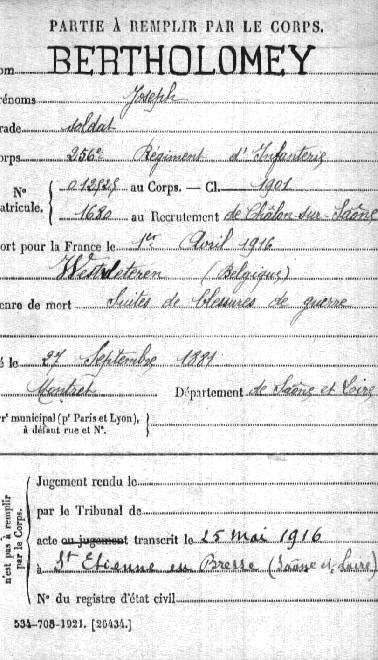 PARTIE À REMPLIR PAR LE CORPS.
om BERTHOLOMEY
rénoms Joseph
rade soldat
orps 256e Régiment d'Infanterie
N° 012525 au Corps. — Cl. 1901
atricule. 1680 au Recrutement de Châlon-sur-Saône
ort pour la France le 1er Avril 1916
(Belgique)
enre de mort Suites de blessures de guerre
é le 27 Septembre 1881
Montret Département de Saône et Loire
rr municipal (pr Paris et Lyon),
à défaut rue et N°.
n'est pas à remplir
par le Corps.
Jugement rendu le
par le Tribunal de
acte ou jugement transcrit le 25 Mai 1916
à St Etienne en Bresse (Saône et Loire)
N° du registre d'état civil
534-708-1921. [26434.]